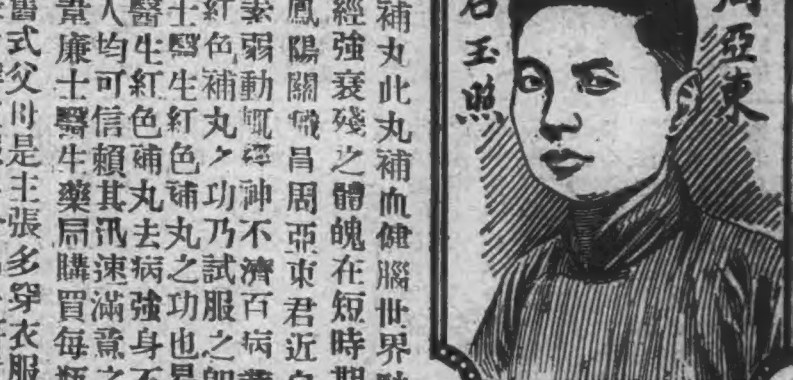 周亞東
君玉照
補丸此丸補血健腦世界
經強衰殘之體魄在短時期
鳳陽關 昌周亞東君近
素弱動輒 神不濟百病叢
紅色補丸之功乃試服之即
士醫生紅色補丸之功也
醫生紅色補丸去病強身不
人均可信賴其汛速滿意之
韋廉士醫生藥局購買每瓶
舊式父母是主張多穿衣服